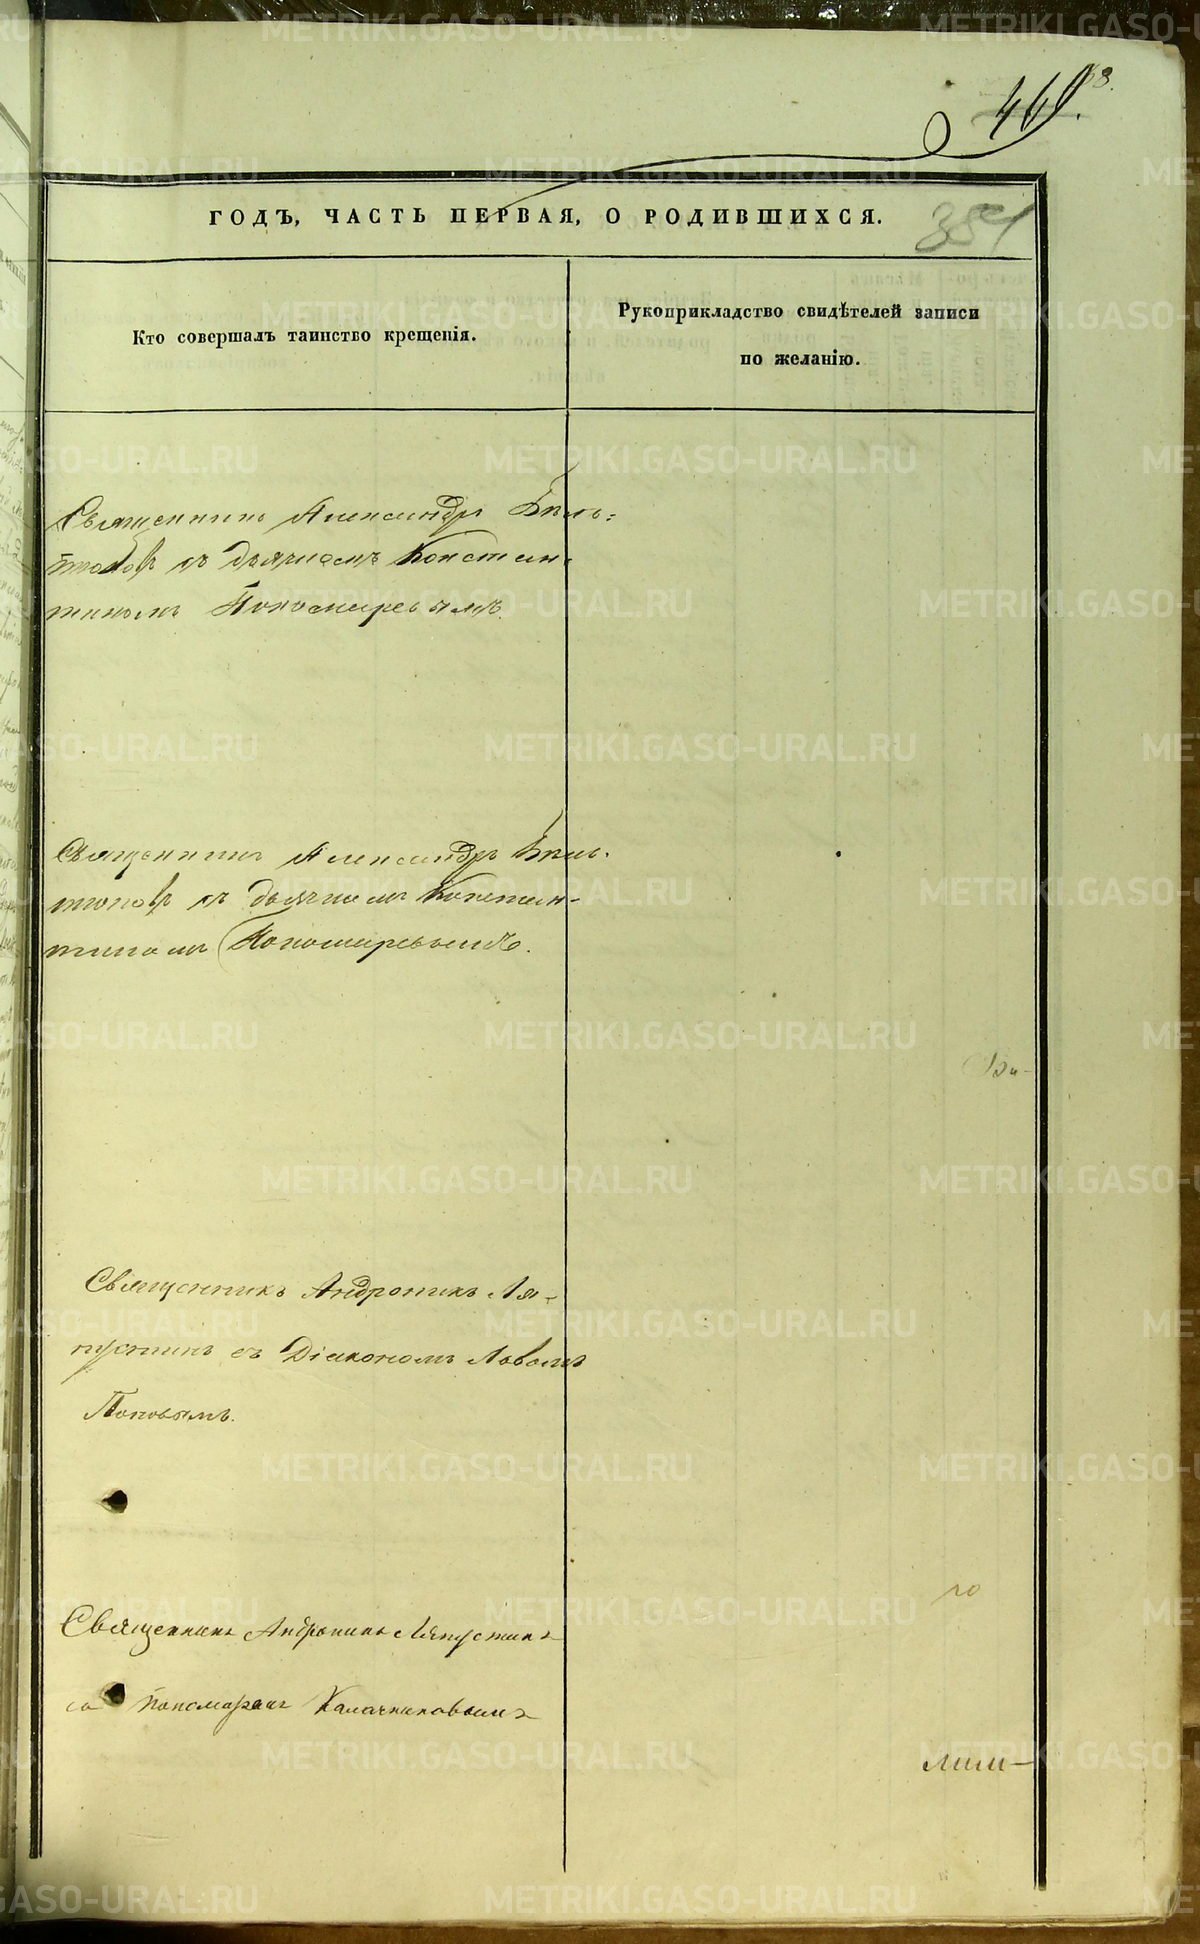 461.
ГОДЪ, ЧАСТЬ ПЕРВАЯ, О РОДИВШИХСЯ.
351
Кто совершалъ таинство крещенія.
Рукоприкладство свидѣтелей записи
по желанію.
Священникъ Александръ Бѣль-
тюковъ съ дьячкомъ Констан-
тиномъ Пономаревымъ.
Священникъ Александръ Бѣль-
тюковъ съ дьячкомъ Констан-
тиномъ Пономаревымъ.
Священникъ Андроникъ Ля-
пустинъ съ Діакономъ Львомъ
Поповымъ.
Священникъ Андроникъ Ляпустинъ
съ Пономаремъ Калачниковымъ
го
лили-
METRIKI.GASO-URAL.RU